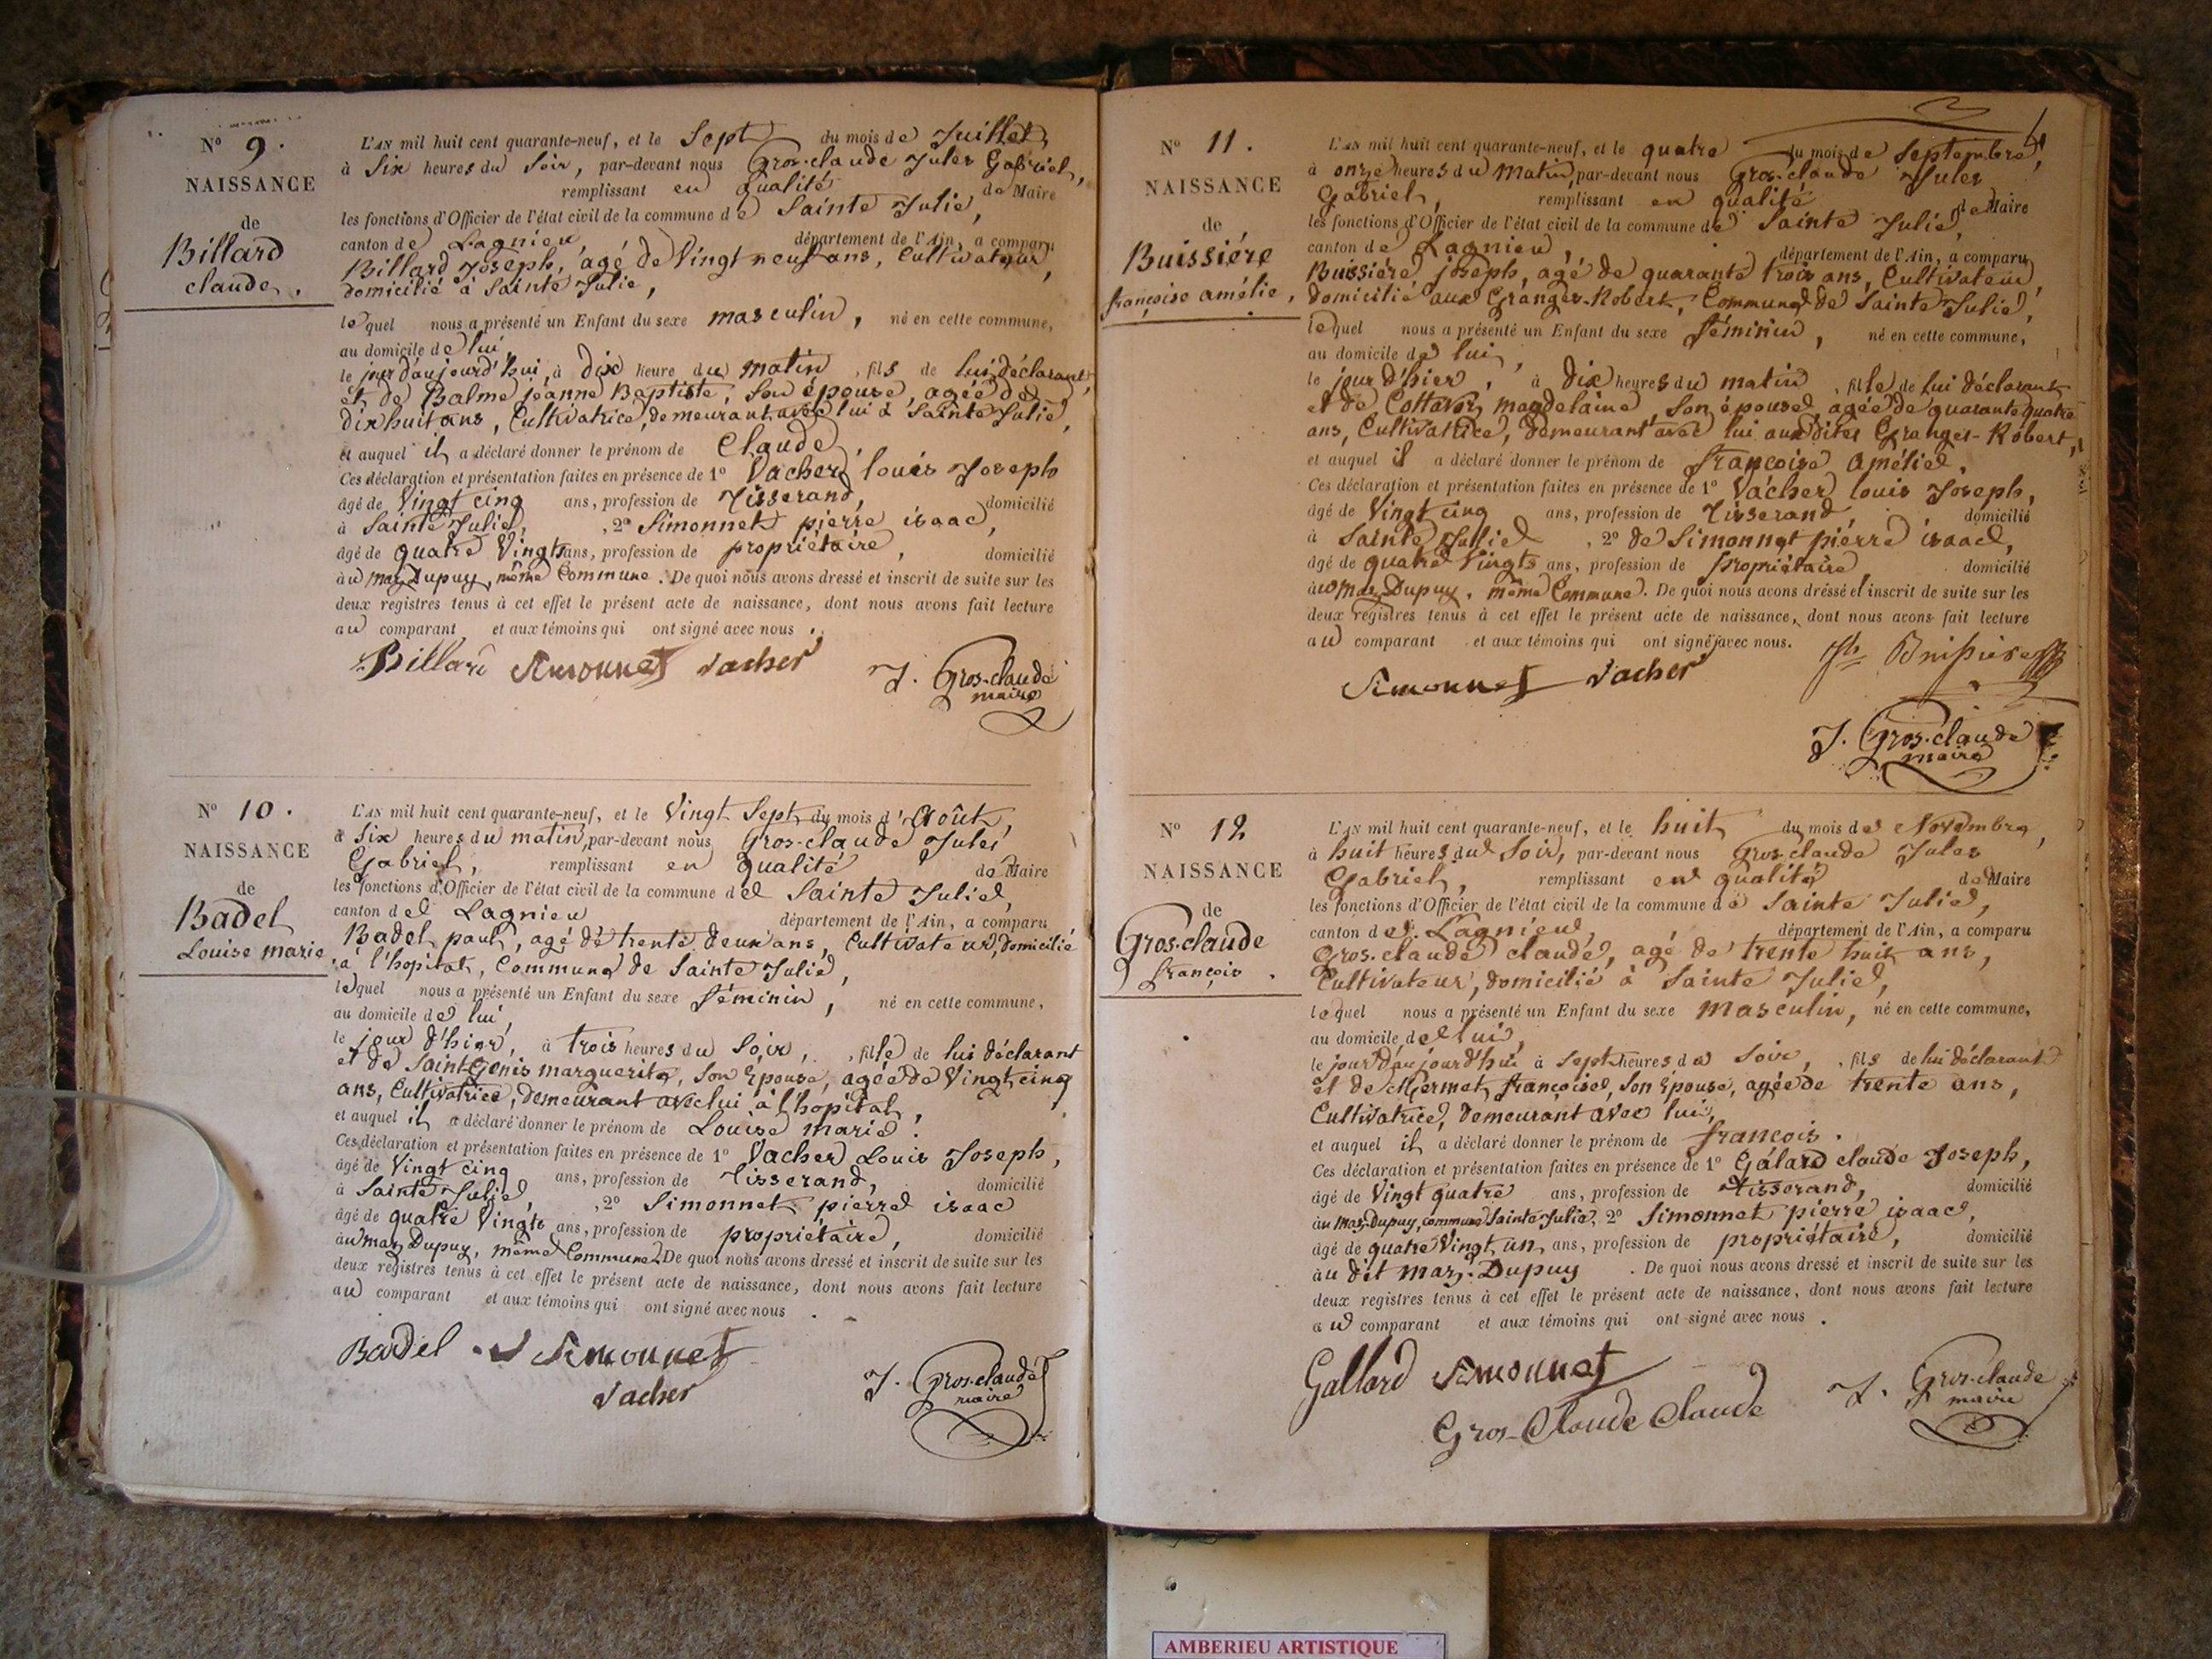 N° 9.
NAISSANCE
de
Billard
claude.
L'AN mil huit cent quarante-neuf, et le Sept du mois de Juillet,
à Six heures du Soir, par-devant nous Gros-claude Jules Gabriel,
remplissant en qualité de Maire
les fonctions d'Officier de l'état civil de la commune de Sainte Julie,
canton de Lagnieu, département de l'Ain, a comparu
Billard Joseph, agé de Vingt neuf ans, Cultivateur,
domicilié à Sainte Julie,
lequel nous a présenté un Enfant du sexe masculin, né en cette commune,
au domicile de lui,
le jour d'aujourd'hui, à dix heure du matin, fils de lui déclarant,
et de Balme jeanne Baptiste, Son épouse, agée de
dix huit ans, Cultivatrice, demeurant avec lui à Sainte Julie,
et auquel il a déclaré donner le prénom de Claude,
Ces déclaration et présentation faites en présence de 1° Vacher louis Joseph
âgé de Vingt cinq ans, profession de Tisserand, domicilié
à Sainte Julie, 2° Simonnet pierre isaac,
âgé de quatre Vingts ans, profession de propriétaire, domicilié
au maz Dupuy, même Commune. De quoi nous avons dressé et inscrit de suite sur les
deux registres tenus à cet effet le présent acte de naissance, dont nous avons fait lecture
au comparant et aux témoins qui ont signé avec nous.
Billard Simonnet Vacher J. Gros-claude
maire
N° 10.
NAISSANCE
de
Badel
Louise marie
L'AN mil huit cent quarante-neuf, et le Vingt Sept du mois d'Août,
à Six heures du matin, par-devant nous Gros-claude Jules
Gabriel, remplissant en qualité de Maire
les fonctions d'Officier de l'état civil de la commune de Sainte Julie,
canton de Lagnieu département de l'Ain, a comparu
Badel paul, agé de trente deux ans, Cultivateur, domicilié
à l'hopital, Commune de Sainte Julie,
lequel nous a présenté un Enfant du sexe féminin, né en cette commune,
au domicile de lui,
le jour d'hier, à trois heures du Soir, fille de lui déclarant
et de Saint-Genis marguerite, Son Epouse, agée de Vingt cinq
ans, Cultivatrice, demeurant avec lui à l'hopital,
et auquel il a déclaré donner le prénom de Louise marie.
Ces déclaration et présentation faites en présence de 1° Vacher Louis Joseph,
âgé de Vingt cinq ans, profession de Tisserand, domicilié
à Sainte Julie, 2° Simonnet pierre isaac
âgé de quatre Vingts ans, profession de propriétaire, domicilié
au maz Dupuy, même Commune. De quoi nous avons dressé et inscrit de suite sur les
deux registres tenus à cet effet le présent acte de naissance, dont nous avons fait lecture
au comparant et aux témoins qui ont signé avec nous.
Badel Simonnet
Vacher J. Gros-claude
maire
N° 11.
NAISSANCE
de
Buissière
françoise amélie,
L'AN mil huit cent quarante-neuf, et le quatre du mois de Septembre,
à onze heures du matin, par-devant nous Gros-claude Jules
Gabriel, remplissant en qualité de Maire
les fonctions d'Officier de l'état civil de la commune de Sainte Julie,
canton de Lagnieu, département de l'Ain, a comparu
Buissière joseph, agé de quarante trois ans, Cultivateur,
domicilié aux Granges-Robert, Commune de Sainte Julie,
lequel nous a présenté un Enfant du sexe féminin, né en cette commune,
au domicile de lui,
le jour d'hier, à dix heures du matin, fille de lui déclarant
et de magdelaine, Son épouse, agée de quarante quatre
ans, Cultivatrice, demeurant avec lui aux dites Granges-Robert,
et auquel il a déclaré donner le prénom de françoise amélie,
Ces déclaration et présentation faites en présence de 1° Vacher louis Joseph,
âgé de Vingt cinq ans, profession de Tisserand, domicilié
à Sainte Julie, 2° de Simonnet pierre isaac,
âgé de quatre Vingts ans, profession de propriétaire, domicilié
au maz Dupuy, même Commune. De quoi nous avons dressé et inscrit de suite sur les
deux registres tenus à cet effet le présent acte de naissance, dont nous avons fait lecture
au comparant et aux témoins qui ont signé avec nous.
Simonnet Vacher
J. Gros-claude
maire
N° 12
NAISSANCE
de
Gros-claude
françois.
L'AN mil huit cent quarante-neuf, et le huit du mois de Novembre,
à huit heures du Soir, par-devant nous Gros claude Jules
Gabriel, remplissant en qualité de Maire
les fonctions d'Officier de l'état civil de la commune de Sainte Julie,
canton de Lagnieu, département de l'Ain, a comparu
Gros-claude claude, agé de trente huit ans,
Cultivateur, domicilié à Sainte Julie,
lequel nous a présenté un Enfant du sexe masculin, né en cette commune,
au domicile de lui,
le jour d'aujourd'hui à Sept heures du Soir, fils de lui déclarant
et de Mermet françoise, Son Epouse, agée de trente ans,
Cultivatrice, demeurant avec lui,
et auquel il a déclaré donner le prénom de françois.
Ces déclaration et présentation faites en présence de 1° Galard claude Joseph,
âgé de Vingt quatre ans, profession de tisserand, domicilié
au maz-Dupuy, commune Sainte Julie, 2° Simonnet pierre isaac,
âgé de quatre Vingt un ans, profession de propriétaire, domicilié
au dit maz-Dupuy. De quoi nous avons dressé et inscrit de suite sur les
deux registres tenus à cet effet le présent acte de naissance, dont nous avons fait lecture
au comparant et aux témoins qui ont signé avec nous.
Gallard Simonnet J. Gros-claude
maire
Gros-Claude Claude
AMBERIEU ARTISTIQUE